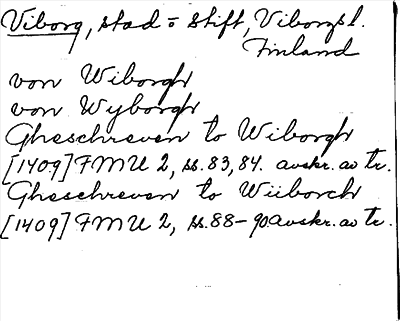 Viborg, stad o Stift, Viborgsl.
Finland
von Wiborgh
von Wyborgh
Gheschreven to Wiborgh
[1409] FMU 2, ss. 83, 84. avskr. av tr.
Gheschreven to Wiiborch
[1409] FMU 2, ss. 88-90. avskr. av tr.